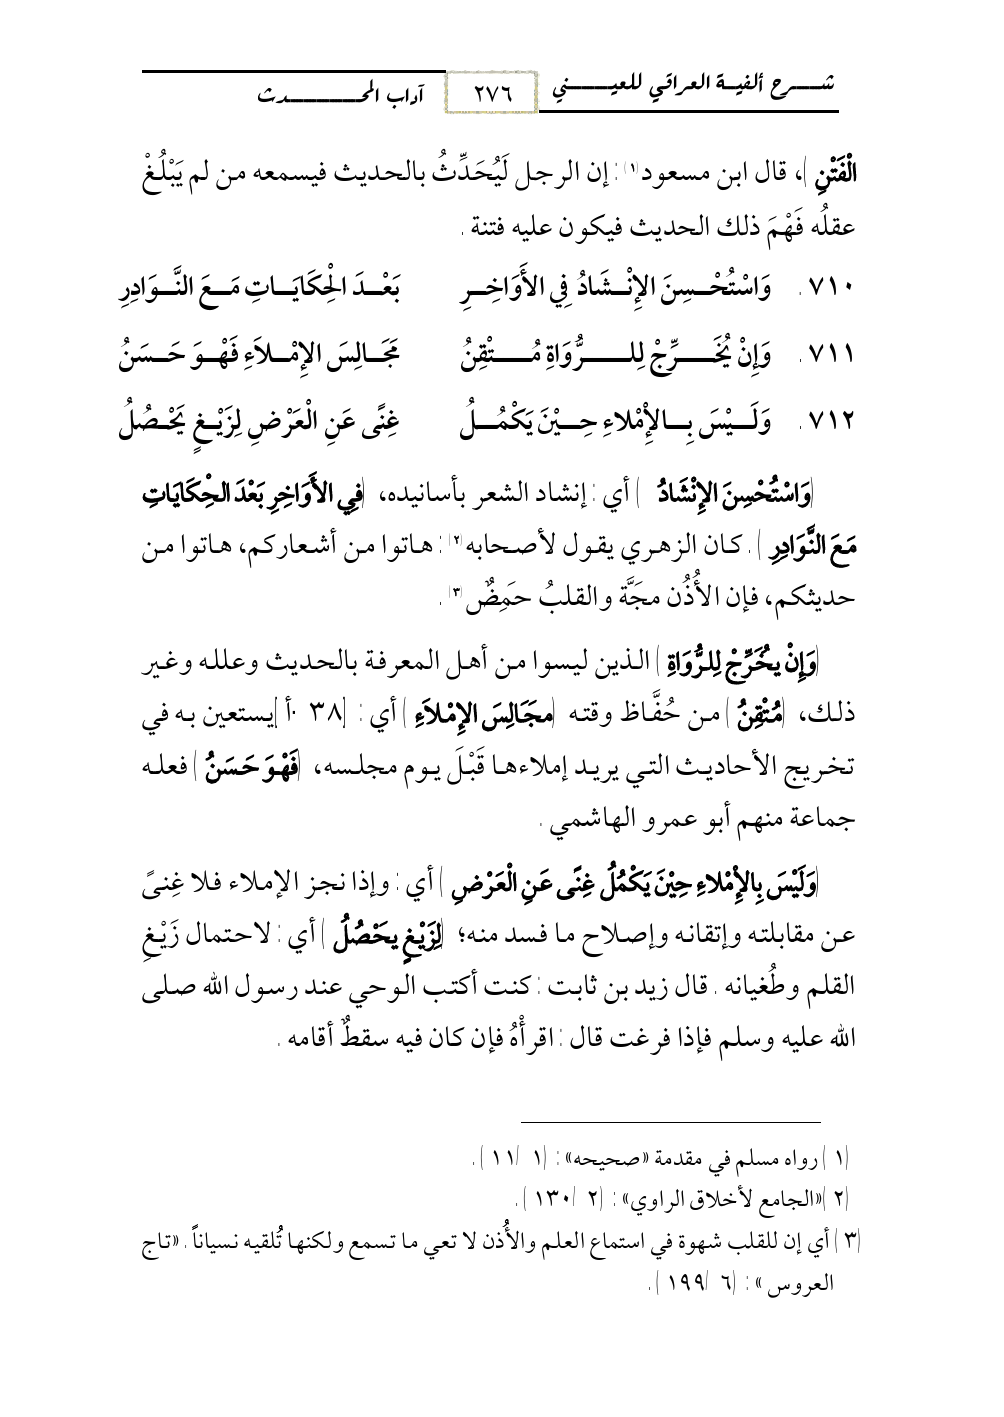 شـــرح ألفيـة العراقي للعيـــــني
٢٧٦
آداب المحـــــــدث
الْفَتْنِ)، قال ابن مسعود(١): إن الرجل لَيُحَدِّثُ بالحديث فيسمعه من لم يَبْلُغْ
عقلُه فَهْمَ ذلك الحديث فيكون عليه فتنة.
٧١٠. وَاسْتُحْسِنَ الإِنْشَادُ فِي الأَوَاخِرِ بَعْدَ الْحِكَايَاتِ مَعَ النَّوَادِرِ
٧١١. وَإِنْ يُخَرِّجْ لِلرُّوَاةِ مُتْقِنُ مَجَالِسَ الإِمْلاَءِ فَهْوَ حَسَنُ
٧١٢. وَلَيْسَ بِالْإِمْلاءِ حِيْنَ يَكْمُلُ غِنًى عَنِ الْعَرْضِ لِزَيْغٍ يَحْصُلُ
(وَاسْتُحْسِنَ الإِنْشَادُ) أي: إنشاد الشعر بأسانيده، (فِي الأَوَاخِرِ بَعْدَ الحْكَايَاتِ
مَعَ النَّوَادِرِ). كان الزهري يقول لأصحابه(٢): هاتوا من أشعاركم، هاتوا من
حديثكم، فإن الأُذُن مجَّة والقلبُ حمَضٌ(٣).
(وَإِنْ يخُرَّجْ لِلرُّوَاةِ) الذين ليسوا من أهل المعرفة بالحديث وعلله وغير
ذلك، (مُتْقِنُ) من حُفَّاظ وقته (مجَالِسَ الإِمْلاَءِ) أي: [٣٨٠أ] يستعين به في
تخريج الأحاديث التي يريد إملاءها قَبْلَ يوم مجلسه، (فَهْوَ حَسَنُ) فعله
جماعة منهم أبو عمرو الهاشمي.
(وَلَيْسَ بِالْإِمْلاءِ حِيْنَ يَكْمُلُ غِنًى عَنِ الْعَرْضِ) أي: وإذا نجز الإملاء فلا غِنىً
عن مقابلته وإتقانه وإصلاح ما فسد منه؛ (لِزَيْغٍ يحْصُلُ) أي: لاحتمال زَيْغِ
القلم وطُغيانه. قال زيد بن ثابت: كنت أكتب الوحي عند رسول الله صلى
الله عليه وسلم فإذا فرغت قال: اقرأْهُ فإن كان فيه سقطٌ أقامه.
(١) رواه مسلم في مقدمة «صحيحه»: (١/ ١١).
(٢) «الجامع لأخلاق الراوي»: (٢/ ١٣٠).
(٣) أي إن للقلب شهوة في استماع العلم والأُذن لا تعي ما تسمع ولكنها تُلقيه نسياناً. «تاج
العروس»: (٦/ ١٩٩).